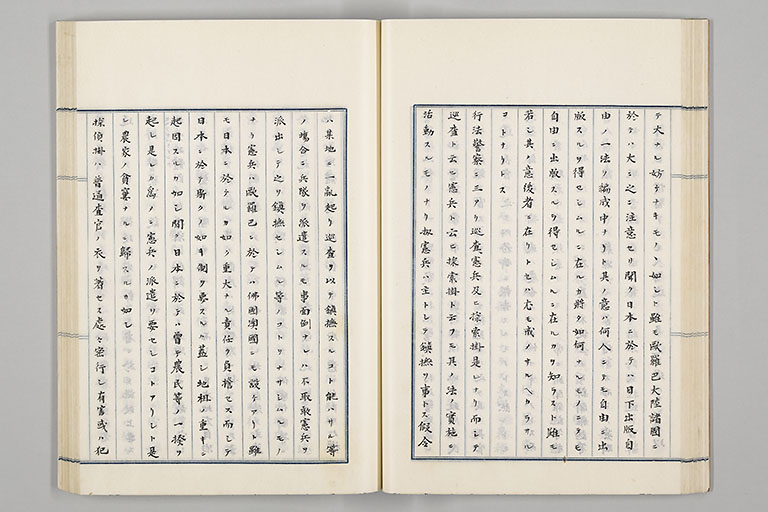 テ大ナル妨ケナキモノヽ如シト雖モ歐羅巴大陸諸國ニ
於テハ大ニ之ニ注意セリ聞ク日本ニ於テハ目下出版自
由ノ一法ヲ編成中ナリト其ノ意ハ何人ニテモ自由ニ出
版スルヲ得セシムルニ在ルカ將タ如何ナルモノニテモ
自由ニ出版スルヲ得セシムルニ在ルカヲ知ラスト雖モ
若シ其ノ意後者ニ在リトセハ尤モ戒メサルヘカラサル
コトナリトス
行法警察ニ三アリ巡査憲兵及ヒ探索掛是レナリ而シテ
巡査ト云ヒ憲兵ト云ヒ探索掛ト云フモ其ノ法ノ實施ニ
活動スルモノナリ拟憲兵ハ主トシテ鎮撫ヲ事トス假令
ハ某地ニ一亂起リ巡査ヲ以テ鎮撫スルコト能ハサル等
ノ塲合ニ兵隊ヲ派遣スルモ事面倒ナレハ不取敢憲兵ヲ
派出シテ之ヲ鎮撫セシムル等ノコトヲナサシムルモノ
ナリ憲兵ハ歐羅巴ニ於テハ佛國澳國ニモ設ケアリト雖
モ日本ニ於テスルカ如ク重大ナル責任ヲ負擔セス而シテ
日本ニ於テ斯クノ如キ制ヲ要スルハ蓋シ地租ノ重キニ
起因スルカ如シ聞ク日本ニ於テハ曾テ農民等ノ一揆ヲ
起シ是レカ爲メニ憲兵ノ派遣ヲ要セシコトアリシト是
レ農家ノ貧窶ナルニ歸スルカ如シ
探偵掛ハ普通査官ノ衣ヲ着セス處々密行シ有害或ハ犯